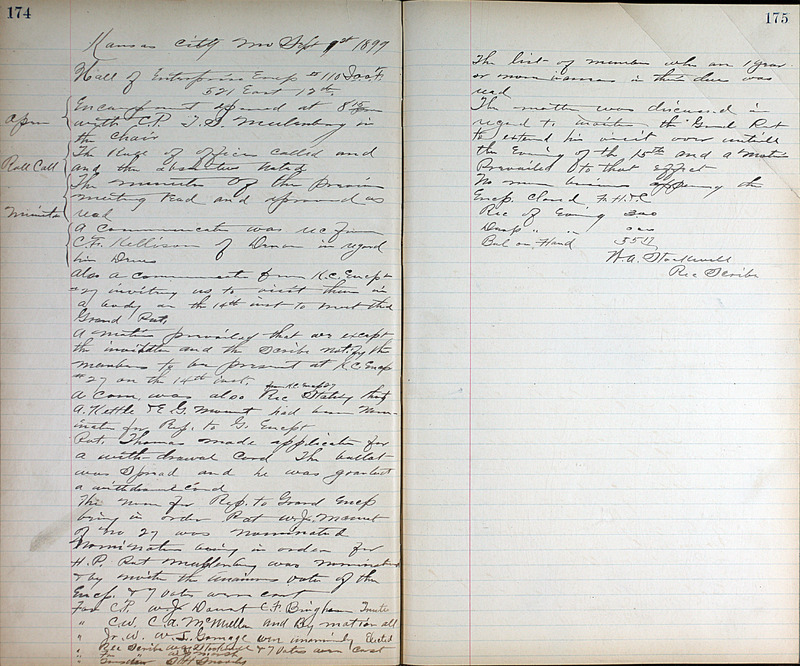 174
Kansas City Mo Sept 1st 1899
Hall of Enterprise Encp # 110 I.o.o.F.
521 East 12th
Encampment opened at 8
with C.P. Muhlenburg in
Open
the Chair
Roll Call
The Roge of officers called and
and the noted
The minutes of the previous
Minutes
meeting read and approved as
read
A Communicate was rec from
C.F. Kellison of in regard
his Dues
Also a communicate from K.C. Encpt
#27 inviting us to visit them in
a body on the 14th inst to meet the
Grand Pat.
A motion prevailed that we except
the invitation and the Scribe notify the
members to be present at K.C. Encp
#27 on the 14th inst.
from K.C. Encp 27
A Com. was also Rec Stating that
A. Kettle & E.G. Mount had been Nom-
inate for Rep. to G. Encpt
Pat. Thomas made applicate for
a with-drawal Card The ballot
was Spread and he was granted
a withdrawal Card
The Nom for Rep. to Grand Encp
being in order Pat Mount
of No 27 was nominated
Nominations being in order for
H.P. Pat Muhlenburg was nominated
& by motion the unanimous vote of the
Encp. & 7 Votes were cast
For C.P. C.F. Bingham
" C.W. C.A. McMullen and By motion all
" Jr. W. W.I. Gamage were unanimously Elected
" Rec Scribe W.A. Stockwell & 7 Votes were Cast
175
The list of members who are 1 year
or more in their dues was
read
The matter was discussed in
regard to the Grand Pat
to extend his visit over untill
the Evening of the 15th and a motion
Prevailed to that Effect
No more business the
Encp. Closed in H.T.C.
Rec of Evening 000
Desp " " 000
Bal on Hand
W.A. Stockwell
Rec Scribe